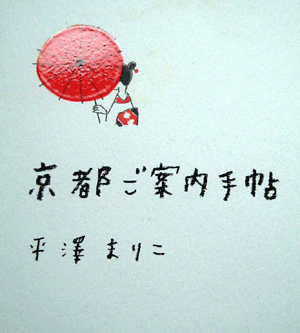 京都ご案内手帖
平澤まりこ